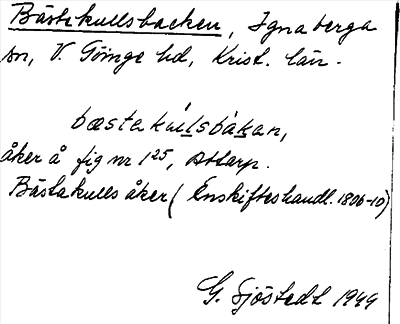 Bästekullsbacken, Ignaberga
sn, V. Göinge hd, Krist. län.
bæstakúlsbàkan,
åker å fig nr 125, Attarp.
Bästakulls åker (Enskifteshandl. 1806-10)
G. Sjöstedt 1944